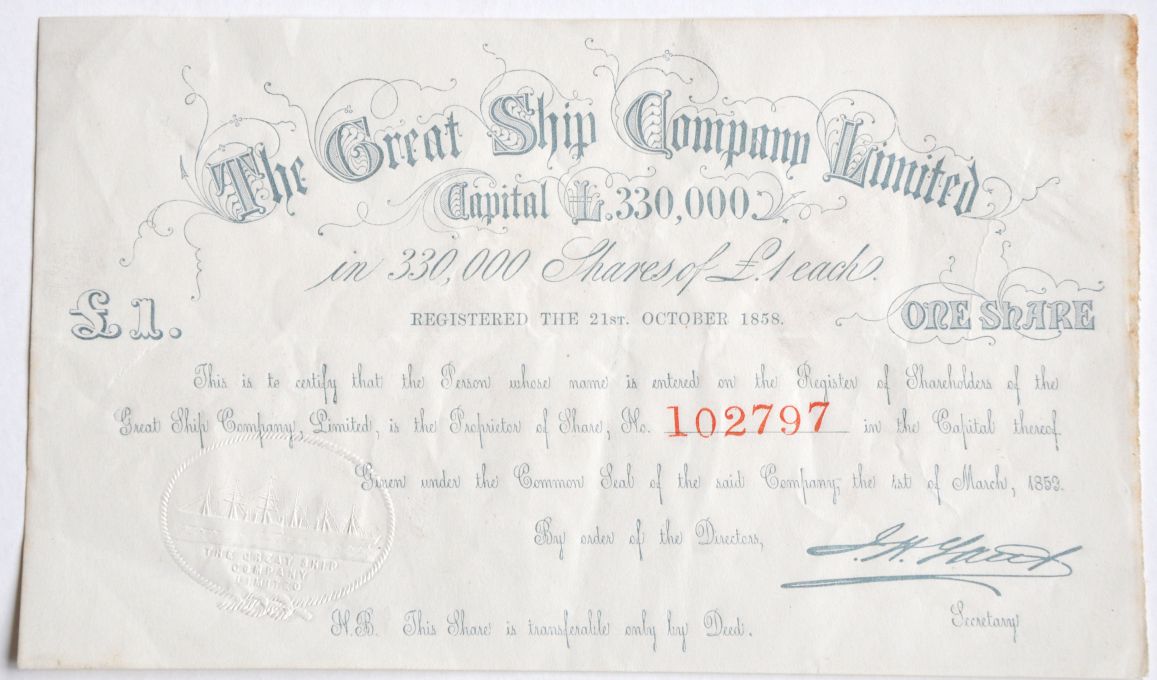 The Great Ship Company Limited
Capital £.330,000.
in 330,000 Shares of £.1 each.
£1.
REGISTERED THE 21ST. OCTOBER 1858.
ONE SHARE
This is to certify that the Person whose name is entered on the Register of Shareholders of the
Great Ship Company, Limited, is the Proprietor of Share, No. 102797 in the Capital thereof.
Given under the Common Seal of the said Company, the 1st of March, 1859.
THE GREAT SHIP
COMPANY
LIMITED
By order of the Directors,
Secretary
N.B. This Share is transferable only by Deed.